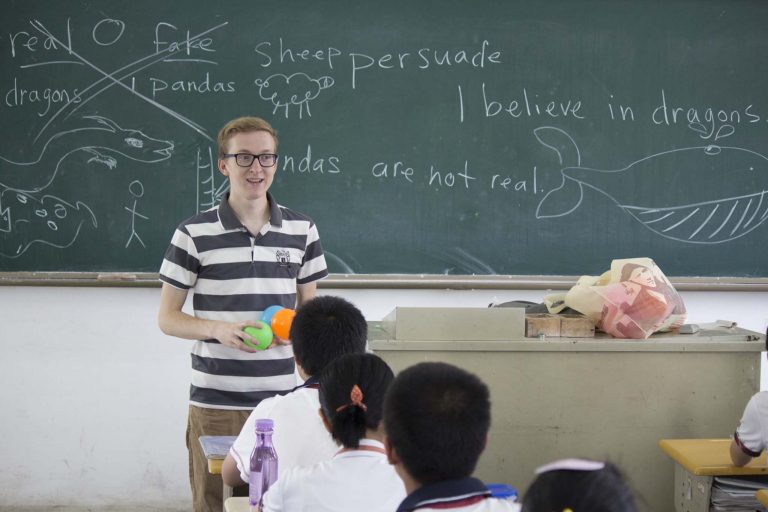 real fake
dragons pandas
sheep persuade
I believe in dragons.
pandas are not real.